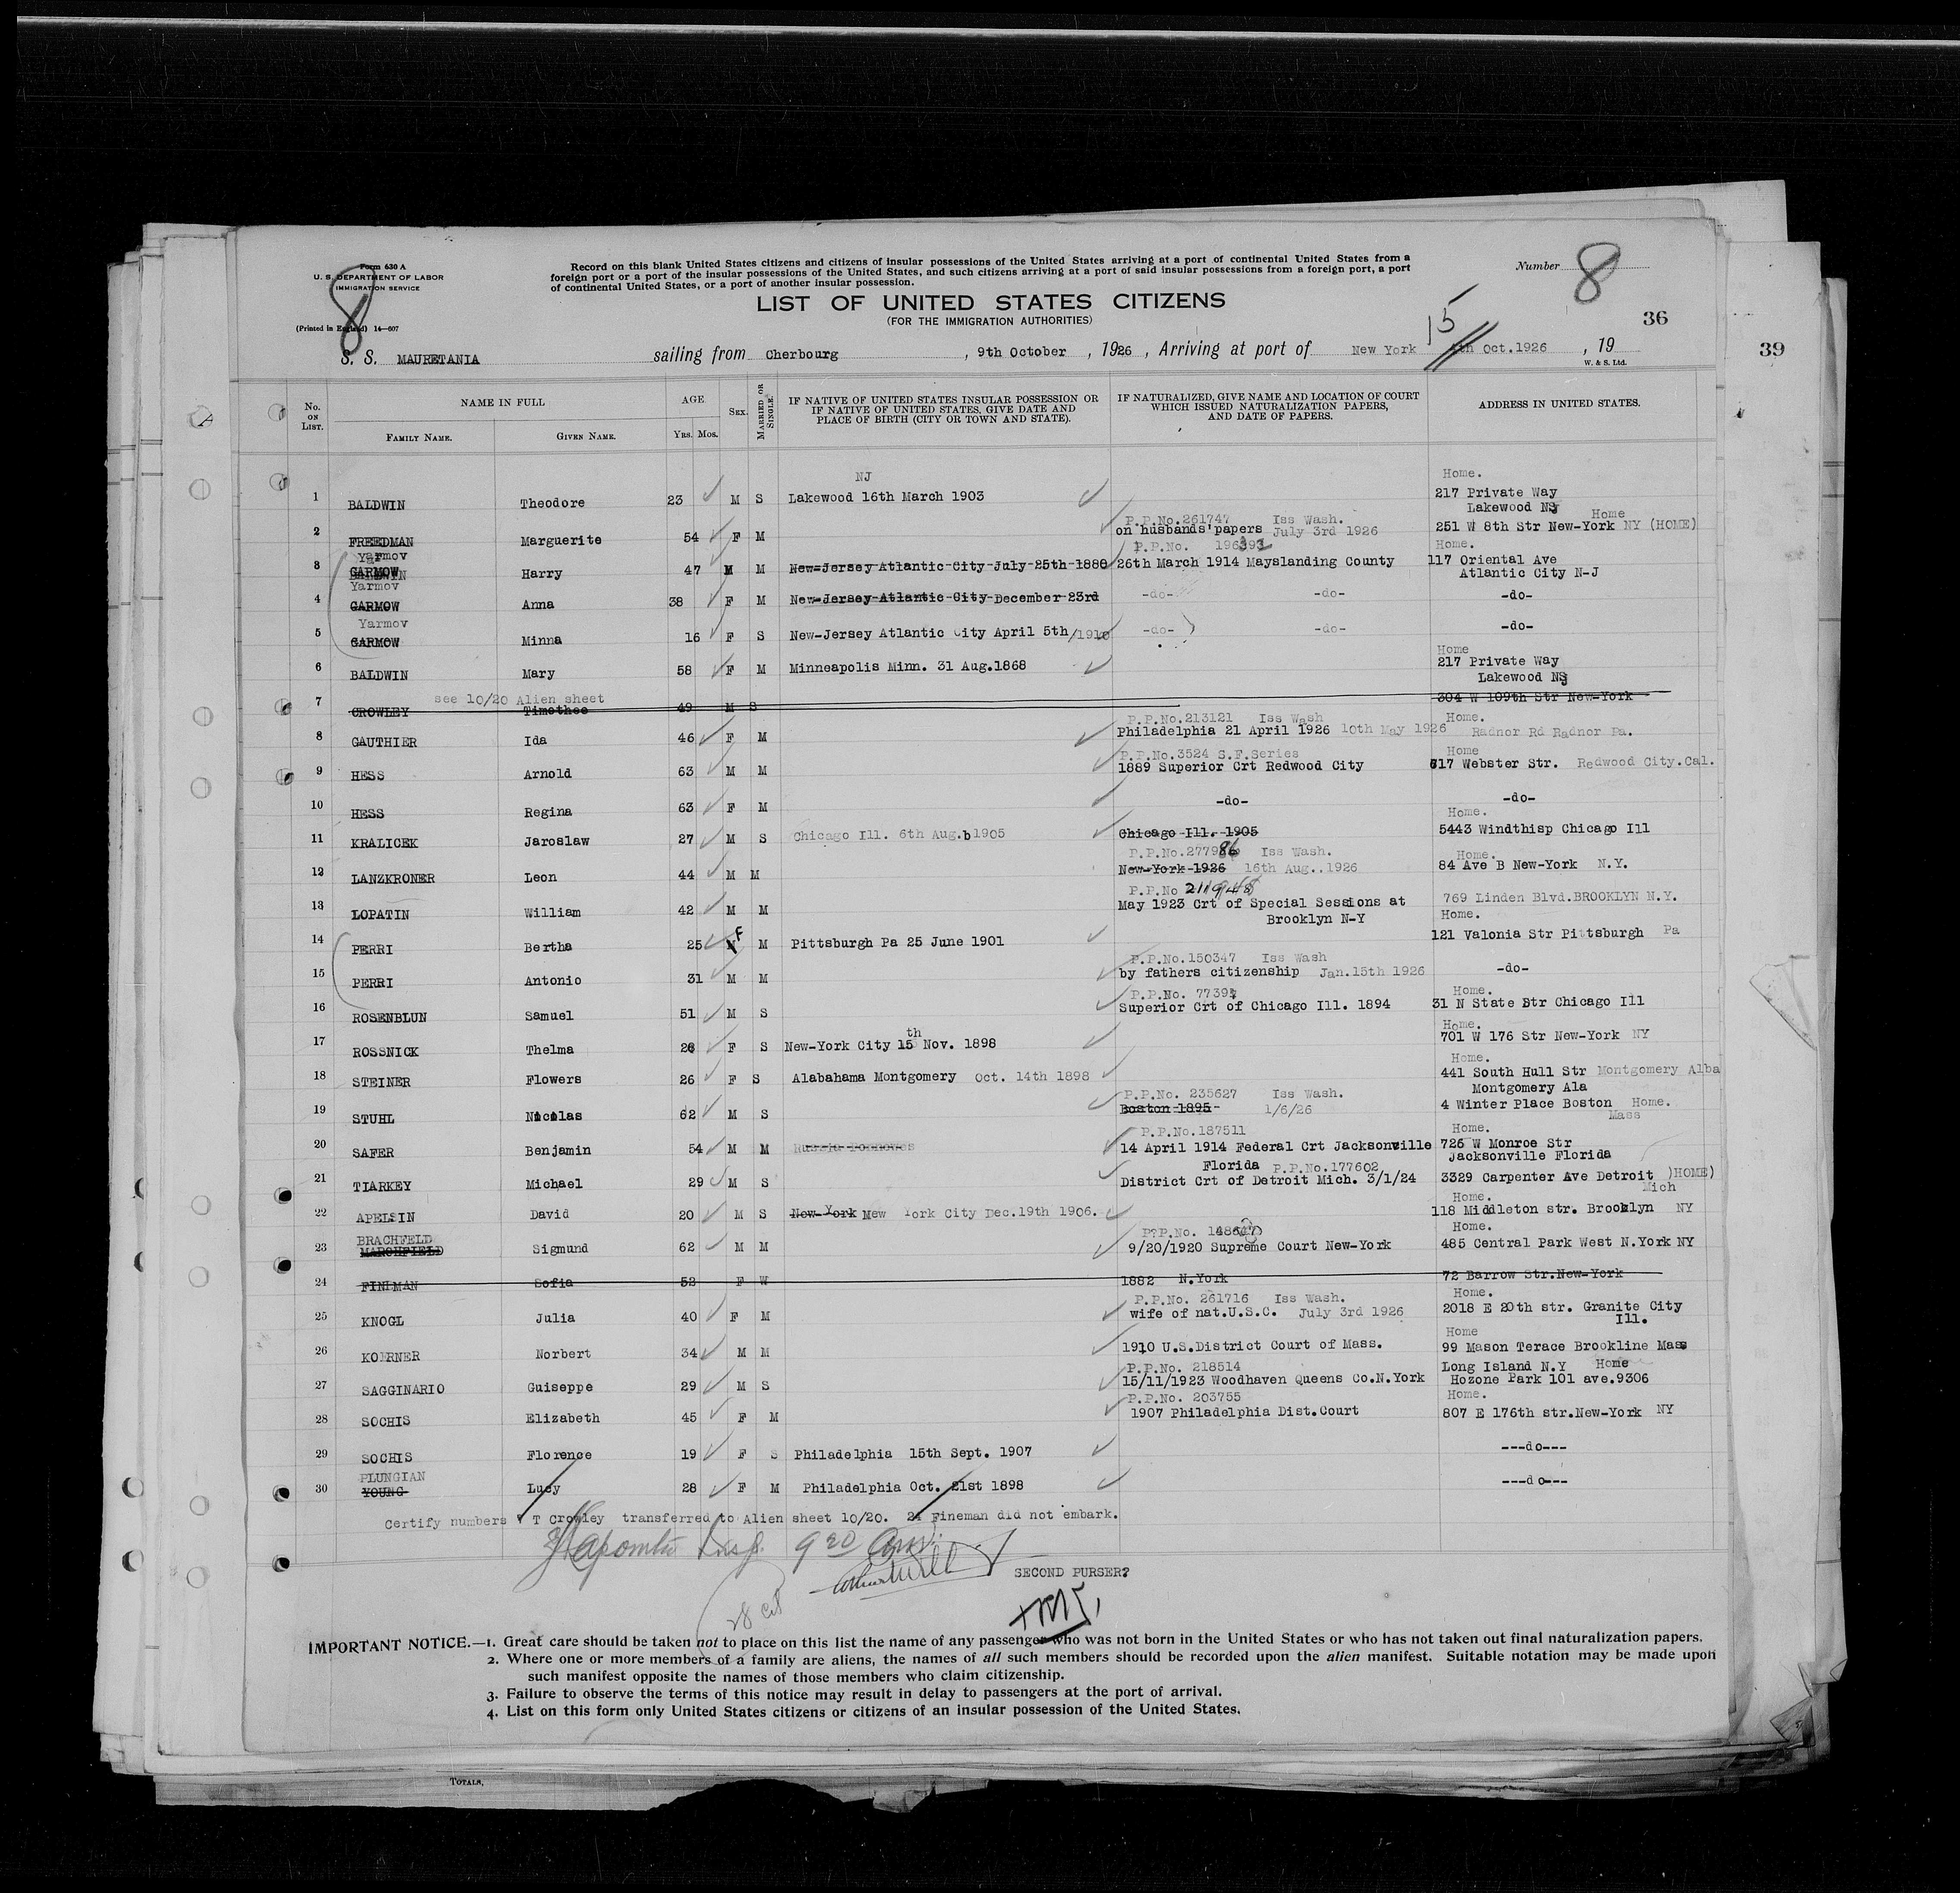 Form 630 A
U. S. DEPARTMENT OF LABOR
IMMIGRATION SERVICE
(Printed in England) 14—607
8
Record on this blank United States citizens and citizens of insular possessions of the United States arriving at a port of continental United States from a
foreign port or a port of the insular possessions of the United States, and such citizens arriving at a port of said insular possessions from a foreign port, a port
of continental United States, or a port of another insular possession.
Number 8
LIST OF UNITED STATES CITIZENS
(FOR THE IMMIGRATION AUTHORITIES)
36
39
S. S. MAURETANIA sailing from Cherbourg, 9th October, 1926, Arriving at port of New York 15 th Oct.1926, 19
W. & S. Ltd.
No. ON LIST. NAME IN FULL AGE SEX. MARRIED OR SINGLE. IF NATIVE OF UNITED STATES INSULAR POSSESSION OR IF NATIVE OF UNITED STATES, GIVE DATE AND PLACE OF BIRTH (CITY OR TOWN AND STATE). IF NATURALIZED, GIVE NAME AND LOCATION OF COURT WHICH ISSUED NATURALIZATION PAPERS, AND DATE OF PAPERS. ADDRESS IN UNITED STATES.
FAMILY NAME. GIVEN NAME. YRS. MOS.
NJ Home.
1 BALDWIN Theodore 23 M S Lakewood 16th March 1903 217 Private Way
Lakewood NJ
P.P.No.261747 Iss Wash. Home
2 FREEDMAN Marguerite 54 F M on husbands'papers July 3rd 1926 251 W 8th Str New-York NY (HOME)
Yarmov P.P.No. Home.
3 GARMOW Harry 47 M M New-Jersey-Atlantic-City-July-25th-1880 26th March 1914 Mayslanding County 117 Oriental Ave
Atlantic City N-J
Yarmov
4 GARMOW Anna 38 F M New-Jersey-Atlantic-City-December-23rd -do- -do- -do-
Yarmov
5 GARMOW Minna 16 F S New-Jersey Atlantic City April 5th/1910 -do- -do- -do-
Home
6 BALDWIN Mary 58 F M Minneapolis Minn. 31 Aug.1868 217 Private Way
Lakewood NJ
see 10/20 Alien sheet
7 CROWLEY Timothee 49 M S 304 W 109th Str New-York
P.P.No.213121 Iss Wash Home.
8 GAUTHIER Ida 46 F M Philadelphia 21 April 1926 10th May 1926 Radnor Rd Radnor Pa.
P.P.No.3524 S.F.Series Home
9 HESS Arnold 63 M M 1889 Superior Crt Redwood City 617 Webster Str. Redwood City.Cal.
10 HESS Regina 63 F M -do- -do-
Home.
11 KRALICEK Jaroslaw 27 M S Chicago Ill. 6th Aug.b1905 Chicago-Ill.-1905 5443 Windthisp Chicago Ill
P.P.No.277986 Iss Wash. Home.
12 LANZKRONER Leon 44 M M New-York-1926 16th Aug..1926 84 Ave B New-York N.Y.
P.P.No 211948
13 LOPATIN William 42 M M May 1923 Crt of Special Sessions at 769 Linden Blvd.BROOKLYN N.Y.
Brooklyn N-Y Home.
14 PERRI Bertha 25 F M Pittsburgh Pa 25 June 1901 121 Valonia Str Pittsburgh Pa
P.P.No.150347 Iss Wash
15 PERRI Antonio 31 M M by fathers citizenship Jan.15th 1926 -do-
P.P.No. Home.
16 ROSENBLUN Samuel 51 M S Superior Crt of Chicago Ill. 1894 31 N State Str Chicago Ill
th Home.
17 ROSSNICK Thelma 28 F S New-York City 15 Nov. 1898 701 W 176 Str New-York NY
Home.
18 STEINER Flowers 26 F S Alabahama Montgomery Oct. 14th 1898 441 South Hull Str Montgomery Alba
Montgomery Ala
P.P.No. 235627 Iss Wash.
19 STUHL Nicolas 62 M S Boston-1895- 1/6/26 4 Winter Place Boston Home.
Mass
P.P.No.187511 Home.
20 SAFER Benjamin 54 M M 14 April 1914 Federal Crt Jacksonville 726 W Monroe Str
Jacksonville Florida
Florida P.P.No.177602
21 TIARKEY Michael 29 M S District Crt of Detroit Mich. 3/1/24 3329 Carpenter Ave Detroit )HOME)
Mich
Home.
22 APELSIN David 20 M S New-York New York City Dec.19th 1906. 118 Middleton str. Brooklyn NY
BRACHFELD P?P.No. Home.
23 MARCHFIELD Sigmund 62 M M 9/20/1920 Supreme Court New-York 485 Central Park West N.York NY
24 FINEMAN Sofia 52 F W 1882 N.York 72 Barrow Str.New-York
P.P.No. 261716 Iss Wash. Home.
25 KNOGL Julia 40 F M wife of nat.U.S.C. July 3rd 1926 2018 E 20th str. Granite City
Ill.
Home
26 KOERNER Norbert 34 M M 1910 U.S.District Court of Mass. 99 Mason Terace Brookline Mass
P.P.No. 218514 Long Island N.Y Home
27 SAGGINARIO Guiseppe 29 M S 15/11/1923 Woodhaven Queens Co.N.York Hozone Park 101 ave.9306
P.P.No. 203755 Home.
28 SOCHIS Elizabeth 45 F M 1907 Philadelphia Dist.Court 807 E 176th str.New-York NY
29 SOCHIS Florence 19 F S Philadelphia 15th Sept. 1907 ---do---
PLUNGIAN
30 YOUNG Lucy 28 F M Philadelphia Oct. 21st 1898 ---do---
Certify numbers 7 T Crowley transferred to Alien sheet 10/20. 24 Fineman did not embark.
SECOND PURSER?
28 cit
IMPORTANT NOTICE.—1. Great care should be taken not to place on this list the name of any passenger who was not born in the United States or who has not taken out final naturalization papers.
2. Where one or more members of a family are aliens, the names of all such members should be recorded upon the alien manifest. Suitable notation may be made upon
such manifest opposite the names of those members who claim citizenship.
3. Failure to observe the terms of this notice may result in delay to passengers at the port of arrival.
4. List on this form only United States citizens or citizens of an insular possession of the United States.
TOTALS,